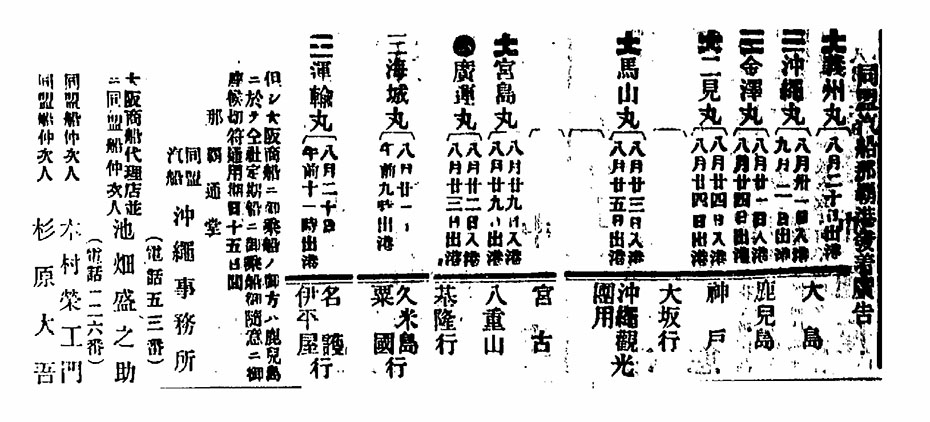 同盟汽船那覇港發着廣告
義州丸 八月二十日出港
沖繩丸 八月卅一日入港
九月二日出港
金澤丸 八月廿一日入港
八月廿四日出港
二見丸 八月廿四日入港
八月廿四日出港
大島
鹿兒島
神戸
大坂行
馬山丸 八月廿三日入港
八月廿五日出港
沖繩觀光
團用
宮島丸 八月廿九日入港
八月廿九日出港
廣運丸 八月廿二日入港
八月廿三日出港
宮古
八重山
基隆行
海城丸 八月廿一
午前九時出港
久米島
粟國行
運輸丸 八月二十日
午前十一時出港
名護
伊平屋行
但シ大阪商船ニ御乘船ノ御方ハ鹿兒島
ニ於テ仝社定期船ニ御乘船御隨意ニ御
座候切符通用期日十五日間
那覇通堂
同盟
汽船 沖繩事務所
(電話五三番)
大阪商船代理店並
ニ同盟船仲次人 池畑盛之助
(電話一二六番)
同盟船仲次人 木村榮工門
同盟船仲次人 杉原大吾